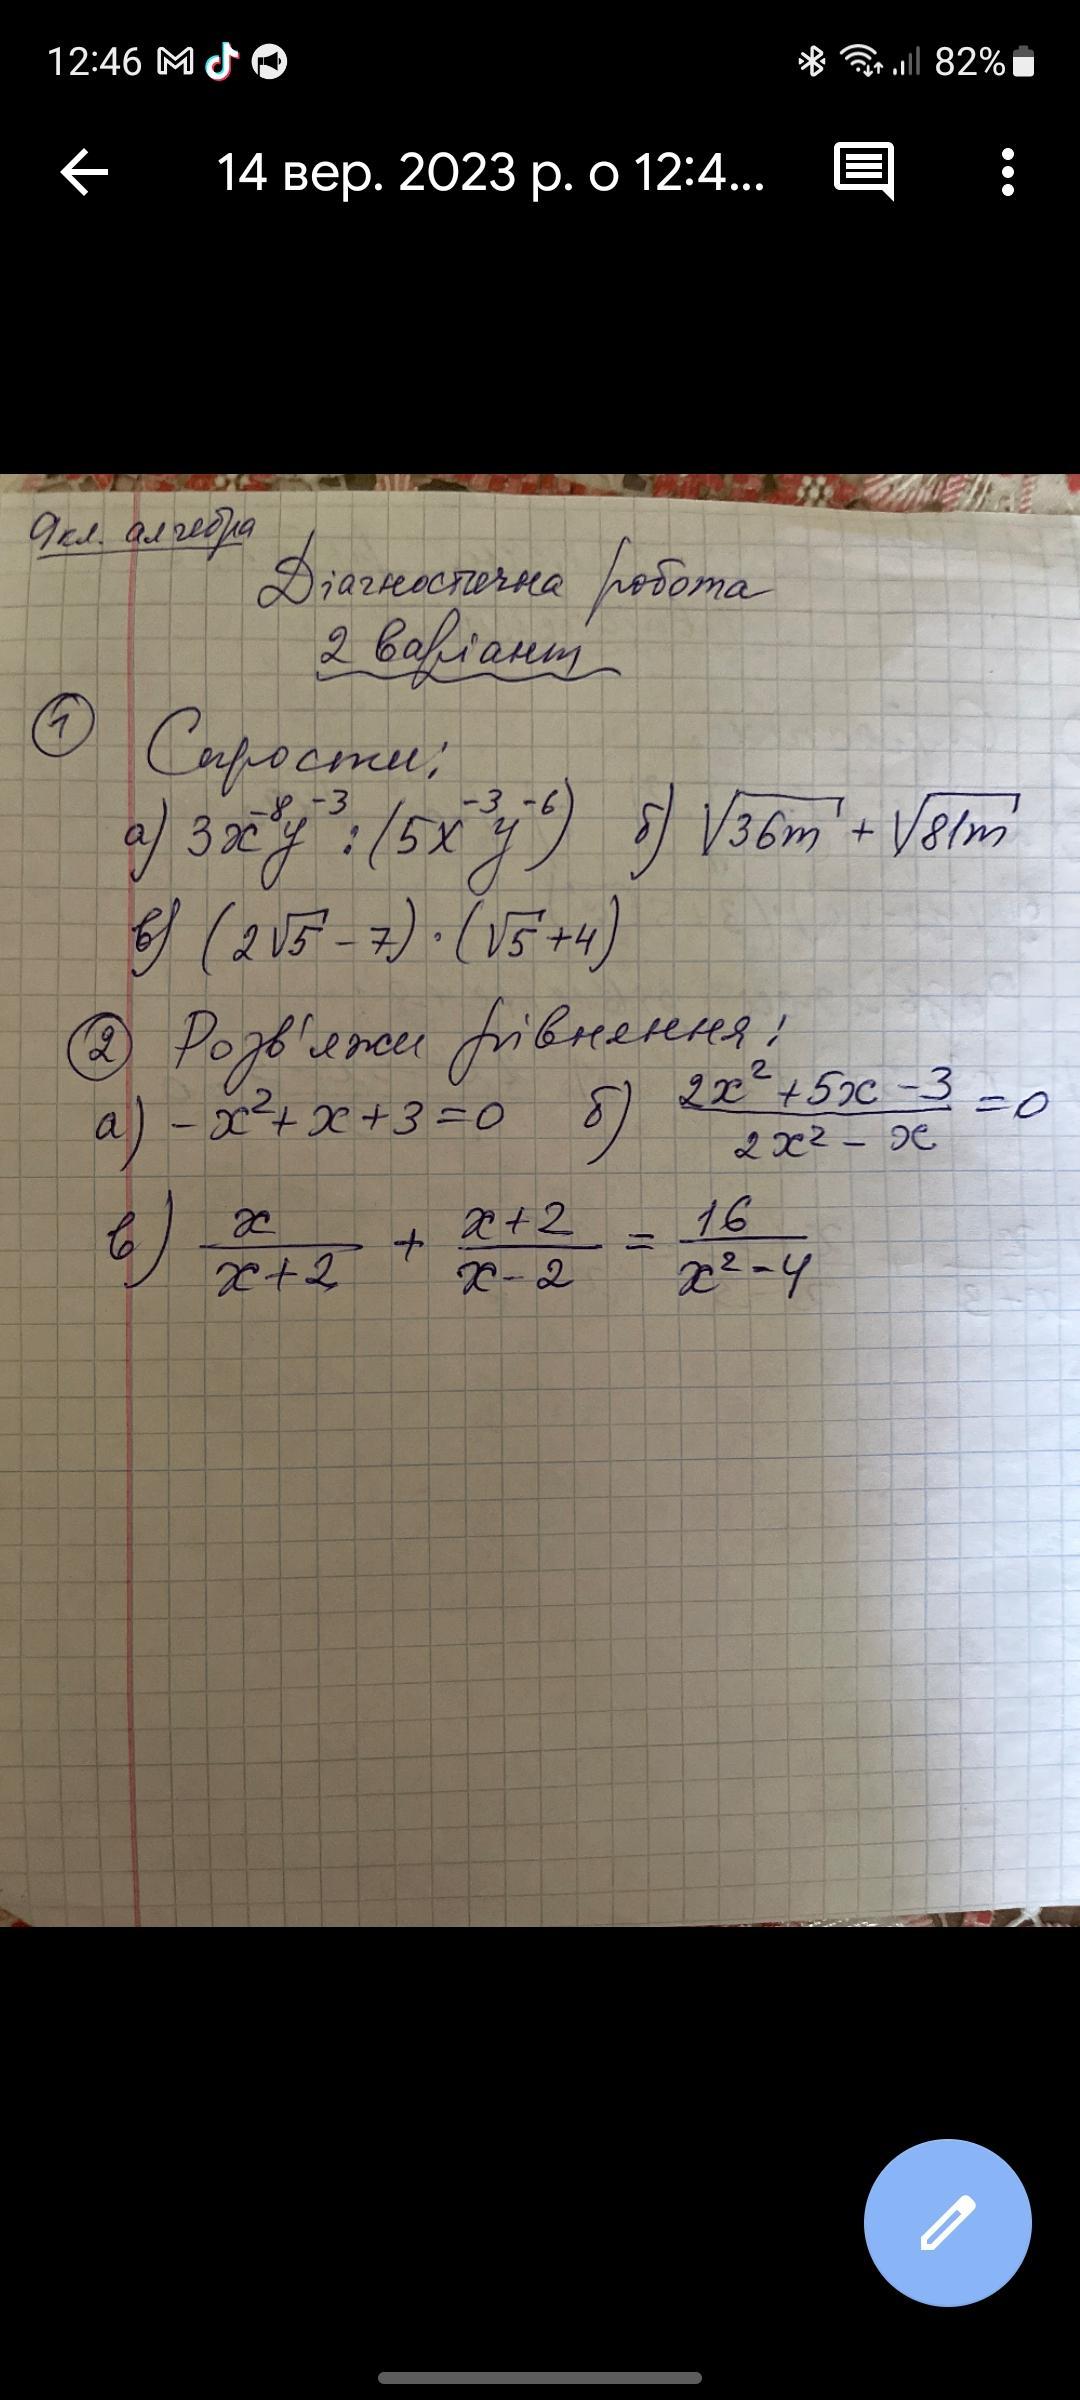 12:46 82%
14 вер. 2023 р. о 12:4...
9кл. алгебра
Діагностична робота
2 варіант
1 Спрости:
а) 3x⁻⁸y⁻³ : (5x⁻³y⁻⁶) б) √36m + √81m
в) (2√5 - 7) · (√5 + 4)
2 Розв'яжи рівняння:
а) -x² + x + 3 = 0 б) (2x² + 5x - 3)/(2x² - x) = 0
в) x/(x+2) + (x+2)/(x-2) = 16/(x²-4)